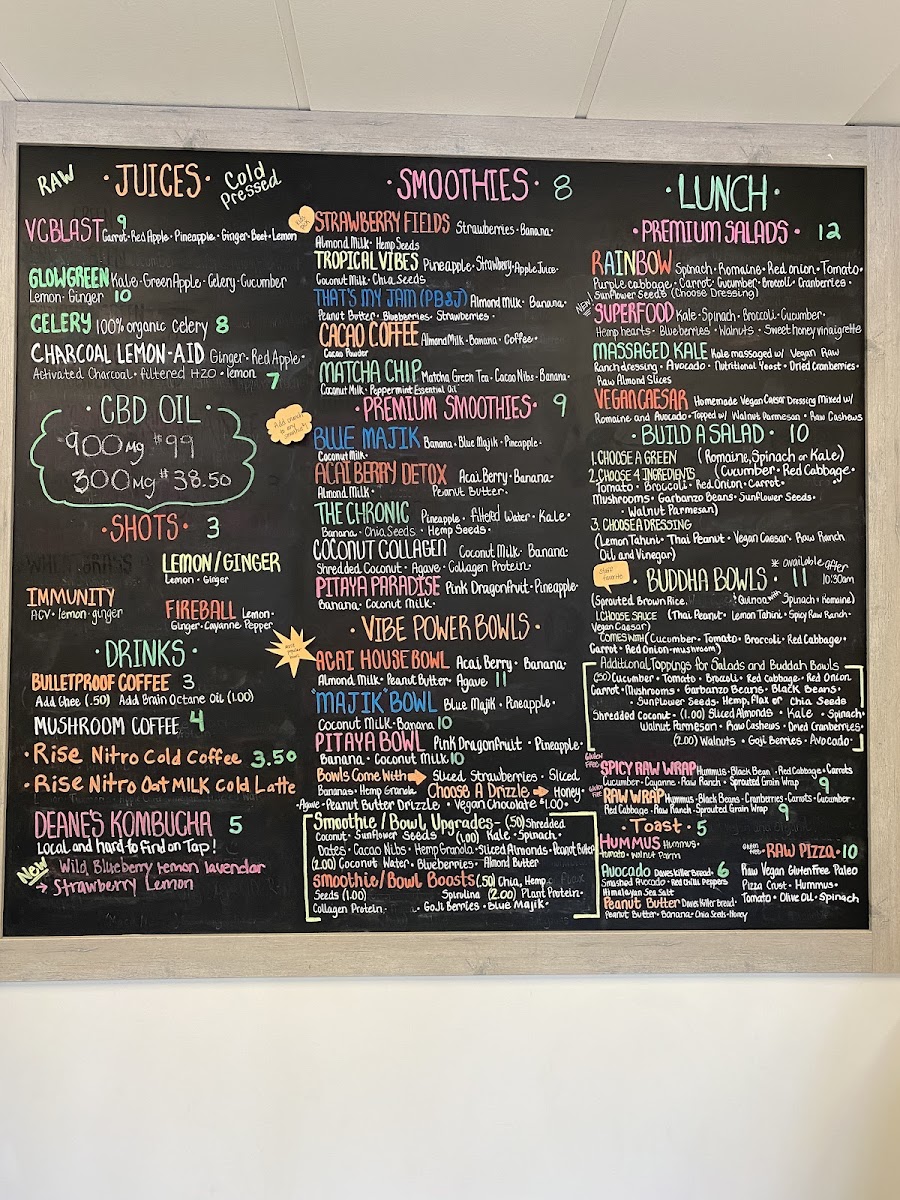 RAW
· JUICES ·
Cold Pressed
VC BLAST 9
Carrot · Red Apple · Pineapple · Ginger · Beet · Lemon
GLOWGREEN Kale · Green Apple · Celery · Cucumber
Lemon · Ginger 10
CELERY 100% organic Celery 8
CHARCOAL LEMON-AID Ginger · Red Apple ·
Activated Charcoal · filtered H2O · lemon 7
· CBD OIL ·
900MG $99
300MG $38.50
· SHOTS · 3
LEMON/GINGER
Lemon · Ginger
IMMUNITY
ACV · lemon · ginger
FIREBALL Lemon ·
Ginger · Cayanne Pepper
· DRINKS ·
BULLETPROOF COFFEE 3
Add Ghee (.50) Add Brain Octane Oil (1.00)
MUSHROOM COFFEE 4
· Rise Nitro Cold Coffee 3.50
· Rise Nitro Oat MILK Cold Latte
DEANE'S KOMBUCHA 5
Local and hard to find on Tap!
New
Wild Blueberry Lemon lavendar
→ Strawberry Lemon
· SMOOTHIES · 8
STRAWBERRY FIELDS Strawberries · Banana ·
Almond Milk · Hemp Seeds
TROPICAL VIBES Pineapple · Strawberry · Apple Juice ·
Coconut Milk · Chia Seeds
THAT'S MY JAM (PB&J) Almond Milk · Banana ·
Peanut Butter · Blueberries · Strawberries ·
CACAO COFFEE Almond Milk · Banana · Coffee ·
Cacao Powder
MATCHA CHIP Matcha Green Tea · Cacao Nibs · Banana ·
Coconut Milk · Peppermint Essential Oil
· PREMIUM SMOOTHIES · 9
BLUE MAJIK Banana · Blue Majik · Pineapple ·
Coconut Milk ·
ACAI BERRY DETOX Acai Berry · Banana ·
Almond Milk · Peanut Butter ·
THE CHRONIC Pineapple · filtered Water · Kale ·
Banana · Chia Seeds · Hemp Seeds ·
COCONUT COLLAGEN Coconut Milk · Banana ·
Shredded Coconut · Agave · Collagen Protein ·
PITAYA PARADISE Pink Dragonfruit · Pineapple ·
Banana · Coconut Milk ·
· VIBE POWER BOWLS ·
ACAI HOUSE BOWL Acai Berry · Banana ·
Almond Milk · Peanut Butter · Agave 11
"MAJIK" BOWL Blue Majik · Pineapple ·
Coconut Milk · Banana 10
PITAYA BOWL Pink Dragonfruit · Pineapple ·
Banana · Coconut Milk 10
Bowls Come With → Sliced Strawberries · Sliced
Bananas · Hemp Granola · Choose A Drizzle → Honey ·
· Agave · Peanut Butter Drizzle · Vegan Chocolate $1.00 ·
Smoothie / Bowl Upgrades - (.50) Shredded
Coconut · Sunflower Seeds (1.00) Kale · Spinach ·
Dates · Cacao Nibs · Hemp Granola · Sliced Almonds · Peanut Butter
(2.00) Coconut Water · Blueberries · Almond Butter
Smoothie/Bowl Boosts (.50) Chia, Hemp
Seeds (1.00) Spirulina (2.00) Plant Protein ·
Collagen Protein · Goji Berries · Blue Majik ·
· LUNCH ·
· PREMIUM SALADS · 12
RAINBOW Spinach · Romaine · Red onion · Tomato ·
Purple cabbage · Carrot · Cucumber · Brocoli · Cranberries ·
Sunflower Seeds (Choose Dressing)
New
SUPERFOOD Kale · Spinach · Broccoli · Cucumber ·
Hemp hearts · Blueberries · Walnuts · Sweet honey vinaigrette
MASSAGED KALE Kale massaged w/ Vegan Raw
Ranch dressing · Avocado · Nutritional Yeast · Dried Cranberries ·
Raw Almond Slices
VEGAN CAESAR Homemade Vegan Caesar Dressing Mixed w/
Romaine and Avocado · Topped w/ Walnut Parmesan · Raw Cashews
· BUILD A SALAD · 10
1. CHOOSE A GREEN (Romaine, Spinach or Kale)
2. CHOOSE 4 INGREDIENTS (Cucumber · Red Cabbage ·
Tomato · Broccoli · Red Onion · Carrot ·
Mushrooms · Garbanzo Beans · Sunflower Seeds ·
· Walnut Parmesan)
3. CHOOSE A DRESSING
(Lemon Tahini · Thai Peanut · Vegan Caesar · Raw Ranch
Oil and Vinegar)
Staff favorite
· BUDDHA BOWLS · 11
* available after 10:30am
(Sprouted Brown Rice, Quinoa with Spinach + Romaine)
1. CHOOSE SAUCE (Thai Peanut · Lemon Tahini · Spicy Raw Ranch ·
Vegan Caesar)
COMES WITH (Cucumber · Tomato · Broccoli · Red Cabbage ·
Carrot · Red Onion · mushroom)
Additional Toppings for Salads and Buddah Bowls
(.50) Cucumber · Tomato · Brocoli · Red cabbage · Red Onion
Carrot · Mushrooms · Garbanzo Beans · Black Beans ·
· Sunflower Seeds · Hemp, Flax or Chia Seeds
Shredded Coconut · (1.00) Sliced Almonds · Kale · Spinach ·
Walnut Parmesan · Raw Cashews · Dried Cranberries
(2.00) Walnuts · Goji Berries · Avocado ·
Gluten Free
SPICY RAW WRAP Hummus · Black Bean · Red Cabbage · Carrots
Cucumber · Cayanne · Raw Ranch · Sprouted Grain Wrap 9
RAW WRAP Hummus · Black Beans · Cranberries · Carrots · Cucumber ·
Red Cabbage · Raw Ranch · Sprouted Grain Wrap 9
· Toast · 5
HUMMUS Hummus ·
Tomato · Walnut Parm
Avocado Daves Killer Bread · 6
Smashed Avocado · Red Chili Peppers
Himalayan Sea Salt
Peanut Butter Daves Killer Bread ·
Peanut Butter · Banana · Chia Seeds · Honey
Gluten Free · RAW PIZZA · 10
Raw Vegan Gluten Free Paleo
Pizza Crust · Hummus ·
Tomato · Olive Oil · Spinach